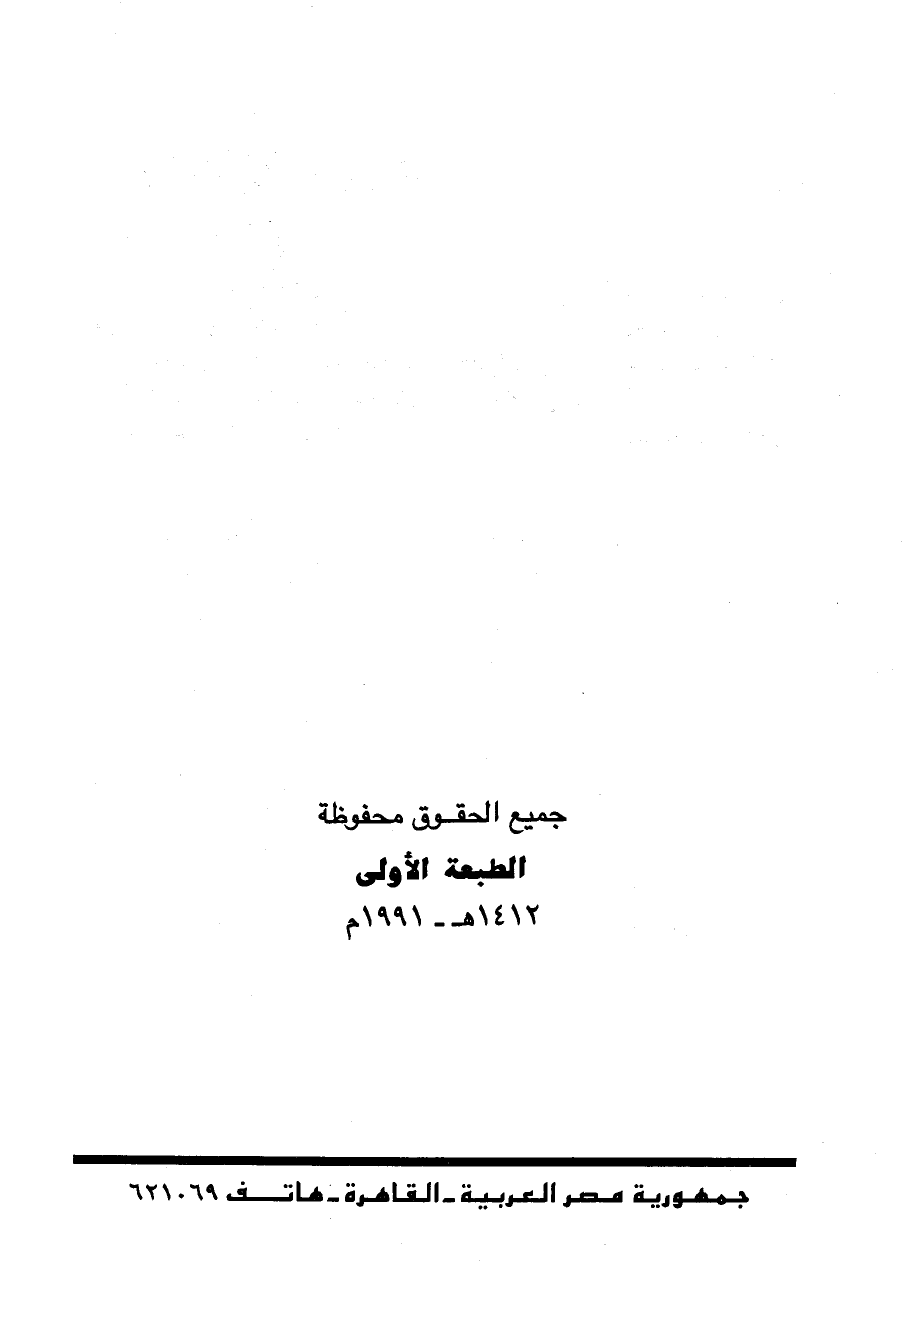 جميع الحقوق محفوظة
الطبعة الأولى
١٤١٢هـ - ١٩٩١م
جمهورية مصر العربية - القاهرة - هاتف ٦٢١٠٦٩